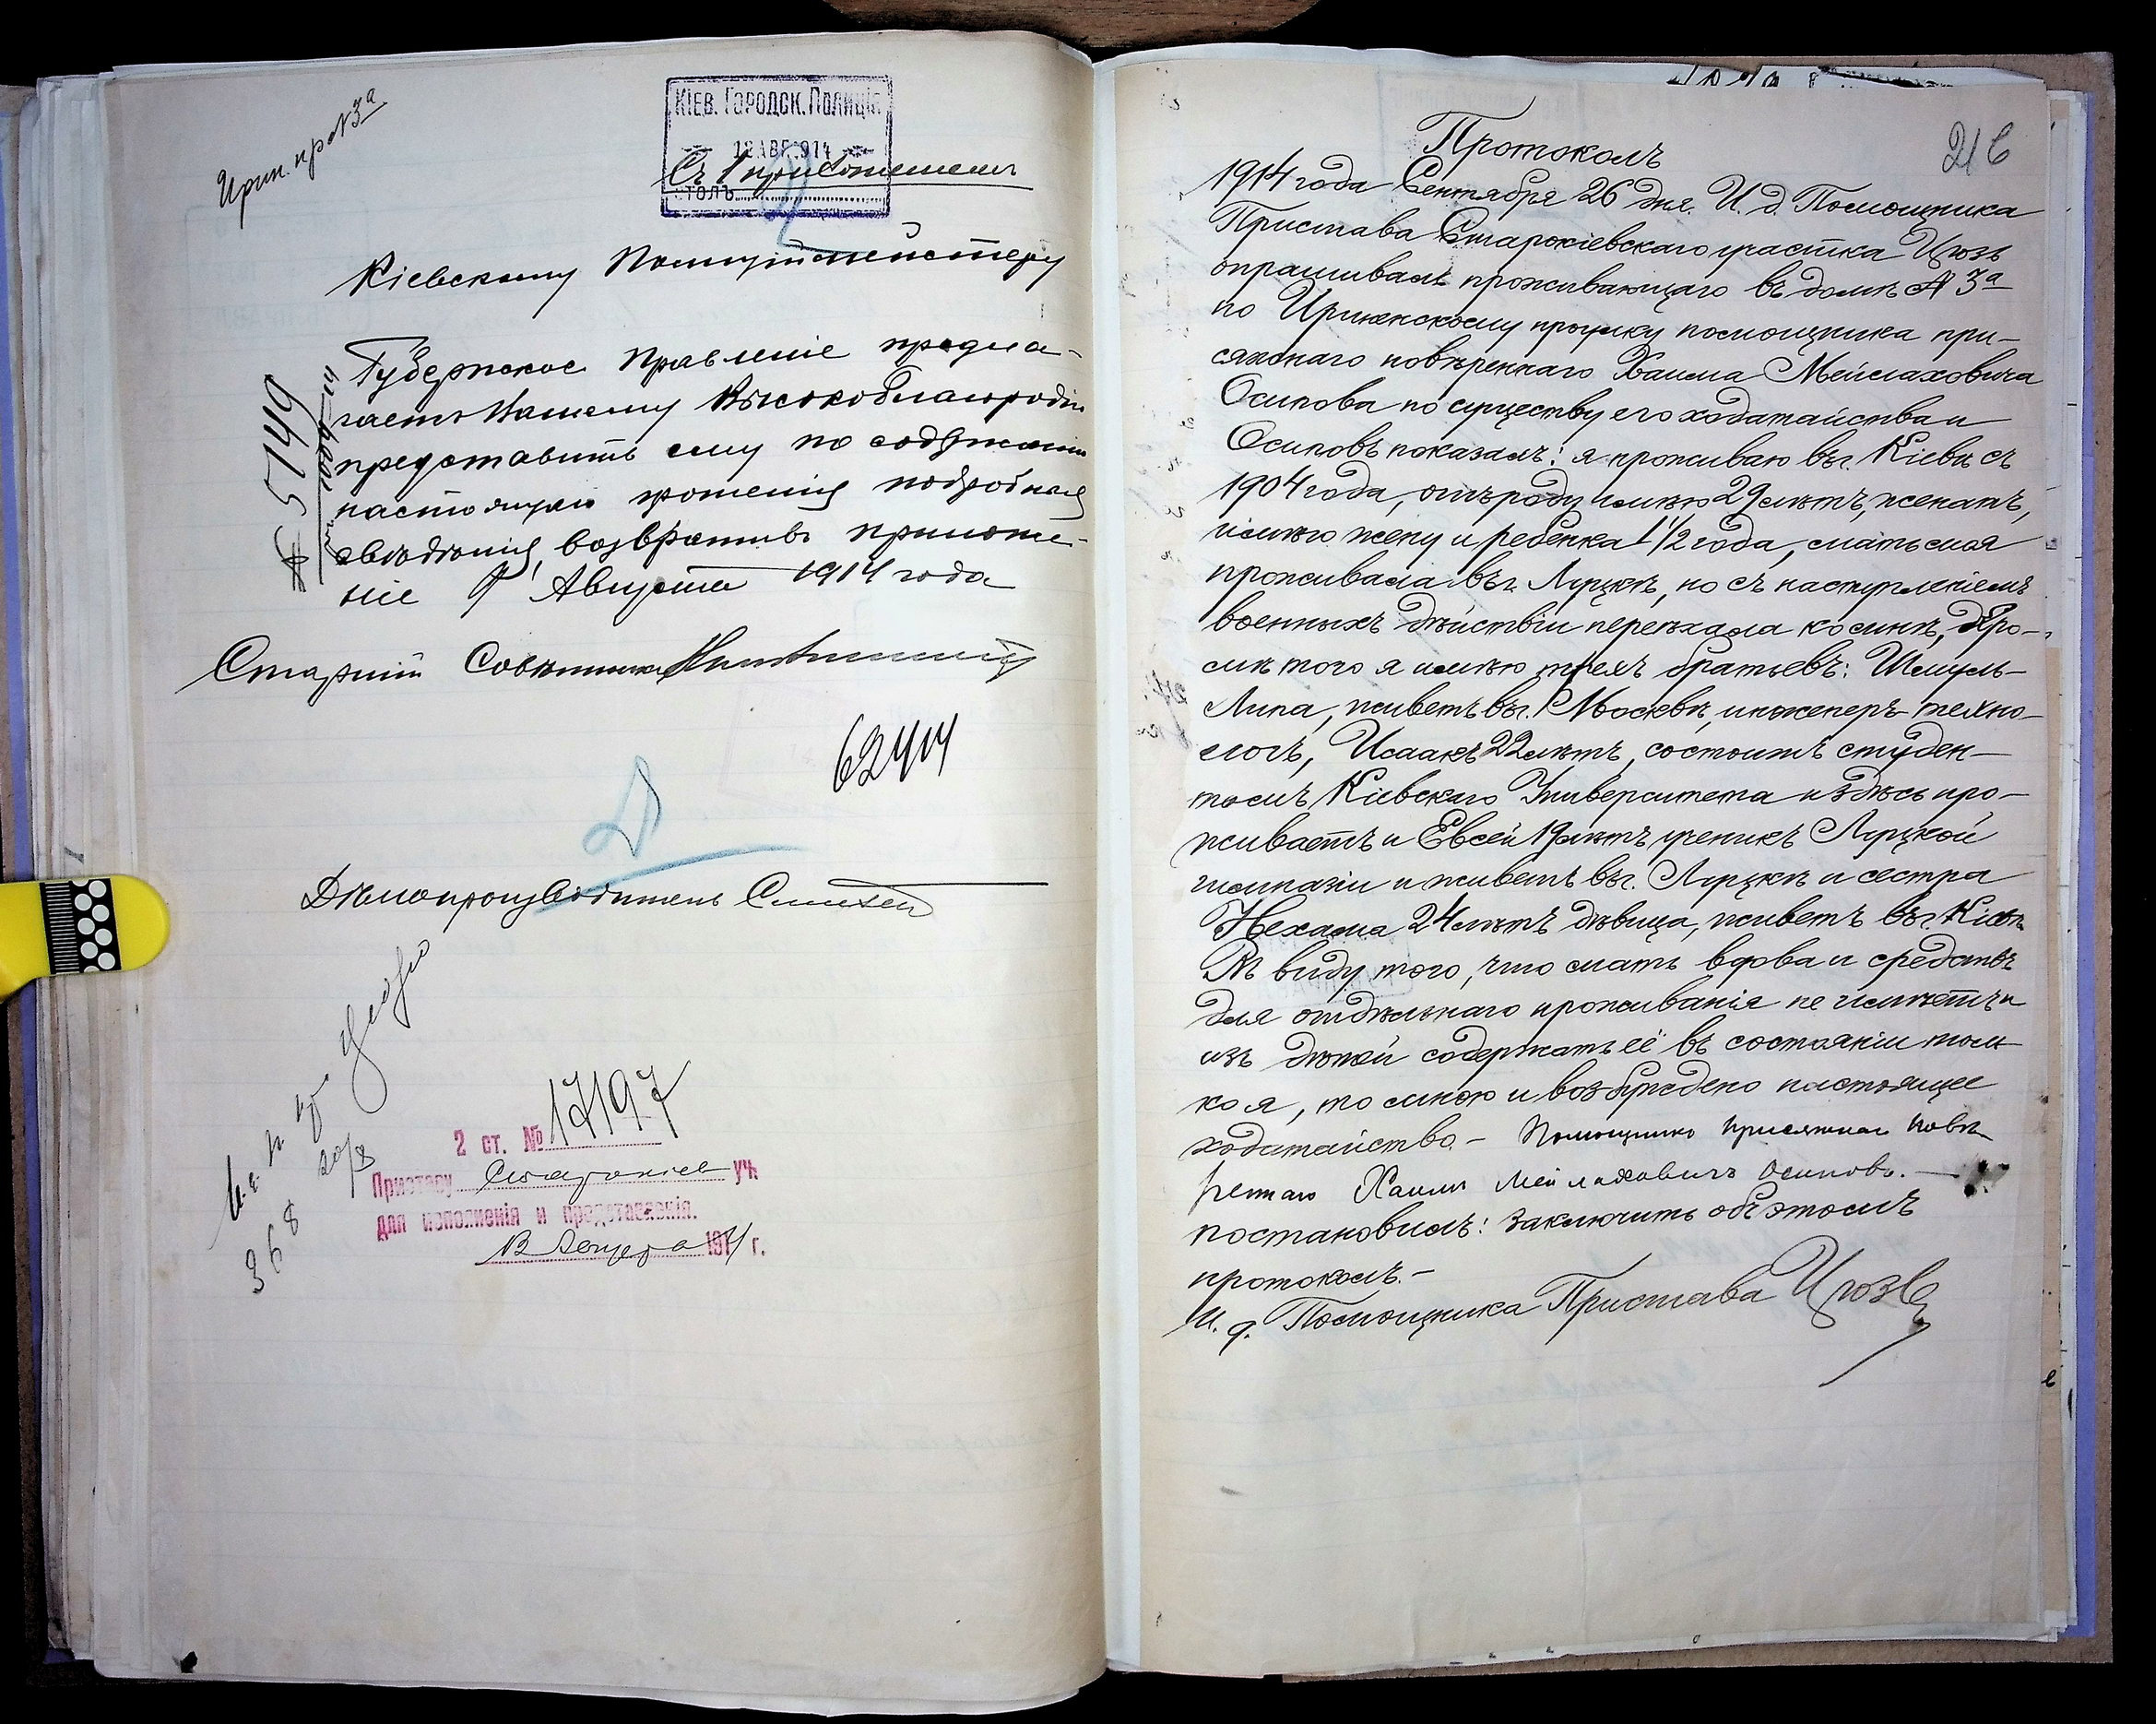 Ирин. пр. №3а
КІЕВ. ГОРОДСК. ПОЛИЦІЯ
12 АВГ. 914
СТОЛЪ
Съ 1 приложеніемъ
Кіевскому Полиціймейстеру
№ 5749
Губернское Правленіе предла-
гаетъ Вашему Высокоблагородію
представить ему по содержанію
настоящаго прошенія подробныя
свѣдѣнія, возвративъ приложе-
ніе 9 Августа 1914 года
Старшій Совѣтникъ
62414
Дѣлопроизводитель
20/8
368
2 ст. № 17197
Приставу Старокіев уч.
для исполненія и представленія.
13 Августа 1914 г.
216
Протоколъ
1914 года Сентября 26 дня. И. д. Помощника
Пристава Старокіевскаго участка
опрашивалъ проживающаго въ домѣ № 3а
по Ирининскому проулку помощника при-
сяжнаго повѣреннаго Хаима Мейлаховича
Осипова по существу его ходатайства и
Осиповъ показалъ: я проживаю въ г. Кіевѣ съ
1904 года, отъ роду имѣю 29 лѣтъ, женатъ,
имѣю жену и ребенка 1 1/2 года, мать моя
проживала въ г. Луцкѣ, но съ наступленіемъ
военныхъ дѣйствій переѣхала ко мнѣ, Кро-
мѣ того я имѣю трехъ братьевъ: Шмуль-
Липа, живетъ въ г. Москвѣ, инженеръ-техно-
логъ, Исаакъ 22 лѣтъ, состоитъ студен-
томъ Кіевскаго Университета и здѣсь про-
живаетъ и Евсей 19 лѣтъ ученикъ Луцкой
гимназіи и живетъ въ г. Луцкѣ и сестра
Нехама 24 лѣтъ дѣвица, живетъ въ г. Кіевѣ
Въ виду того, что мать вдова и средствъ
для отдѣльнаго проживанія не имѣетъ и
изъ дѣтей содержать её въ состояніи толь-
ко я, то мною и возбуждено настоящее
ходатайство. – Помощникъ Присяжнаго Повѣ-
реннаго Хаимъ Мейлаховичъ Осиповъ. –
постановилъ: заключить объ этомъ
протоколъ. –
И. д. Помощника Пристава